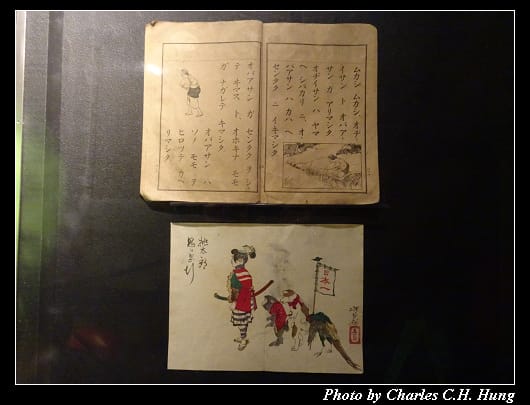 ムカシ ムカシ、オヂ
イサン ト オバア
サン ガ アリマシタ
オヂイサン ハ ヤマ
ヘ シバカリ ニ、オ
バアサン ハ カハ ヘ
センタク ニ イキマシタ
オバアサン ガ センタク ヲ シ
テ ヰマス ト、オホキナ モモ
ガ ナガレテ キマシタ
オバアサン ハ
ソノ モモ ヲ
ヒロツテ カヘ
リマシタ
日本一
桃太郎
Photo by Charles C.H. Hung